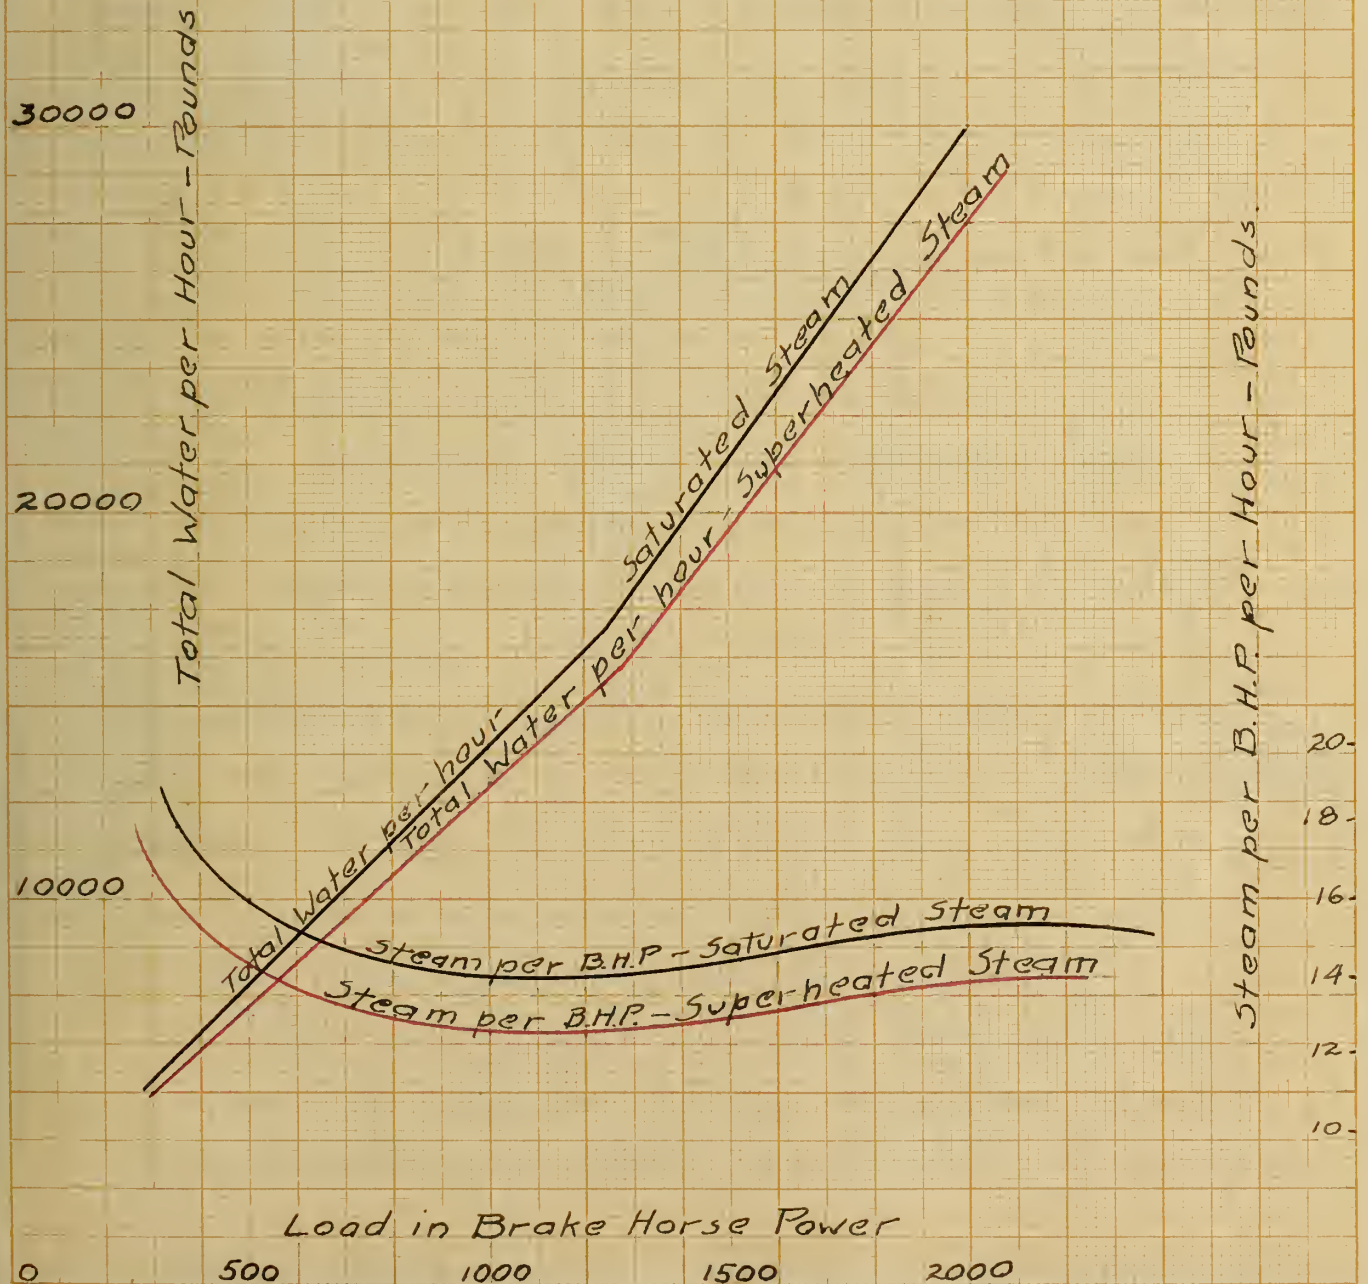 Total Water per Hour - Pounds
30000
20000
10000
Total Water per hour Saturated Steam
Total Water per hour - Superheated Steam
Steam per B.H.P - Saturated Steam
Steam per B.H.P. - Superheated Steam
Steam per B.H.P. per Hour - Pounds.
20-
18-
16-
14-
12-
10-
Load in Brake Horse Power
0 500 1000 1500 2000